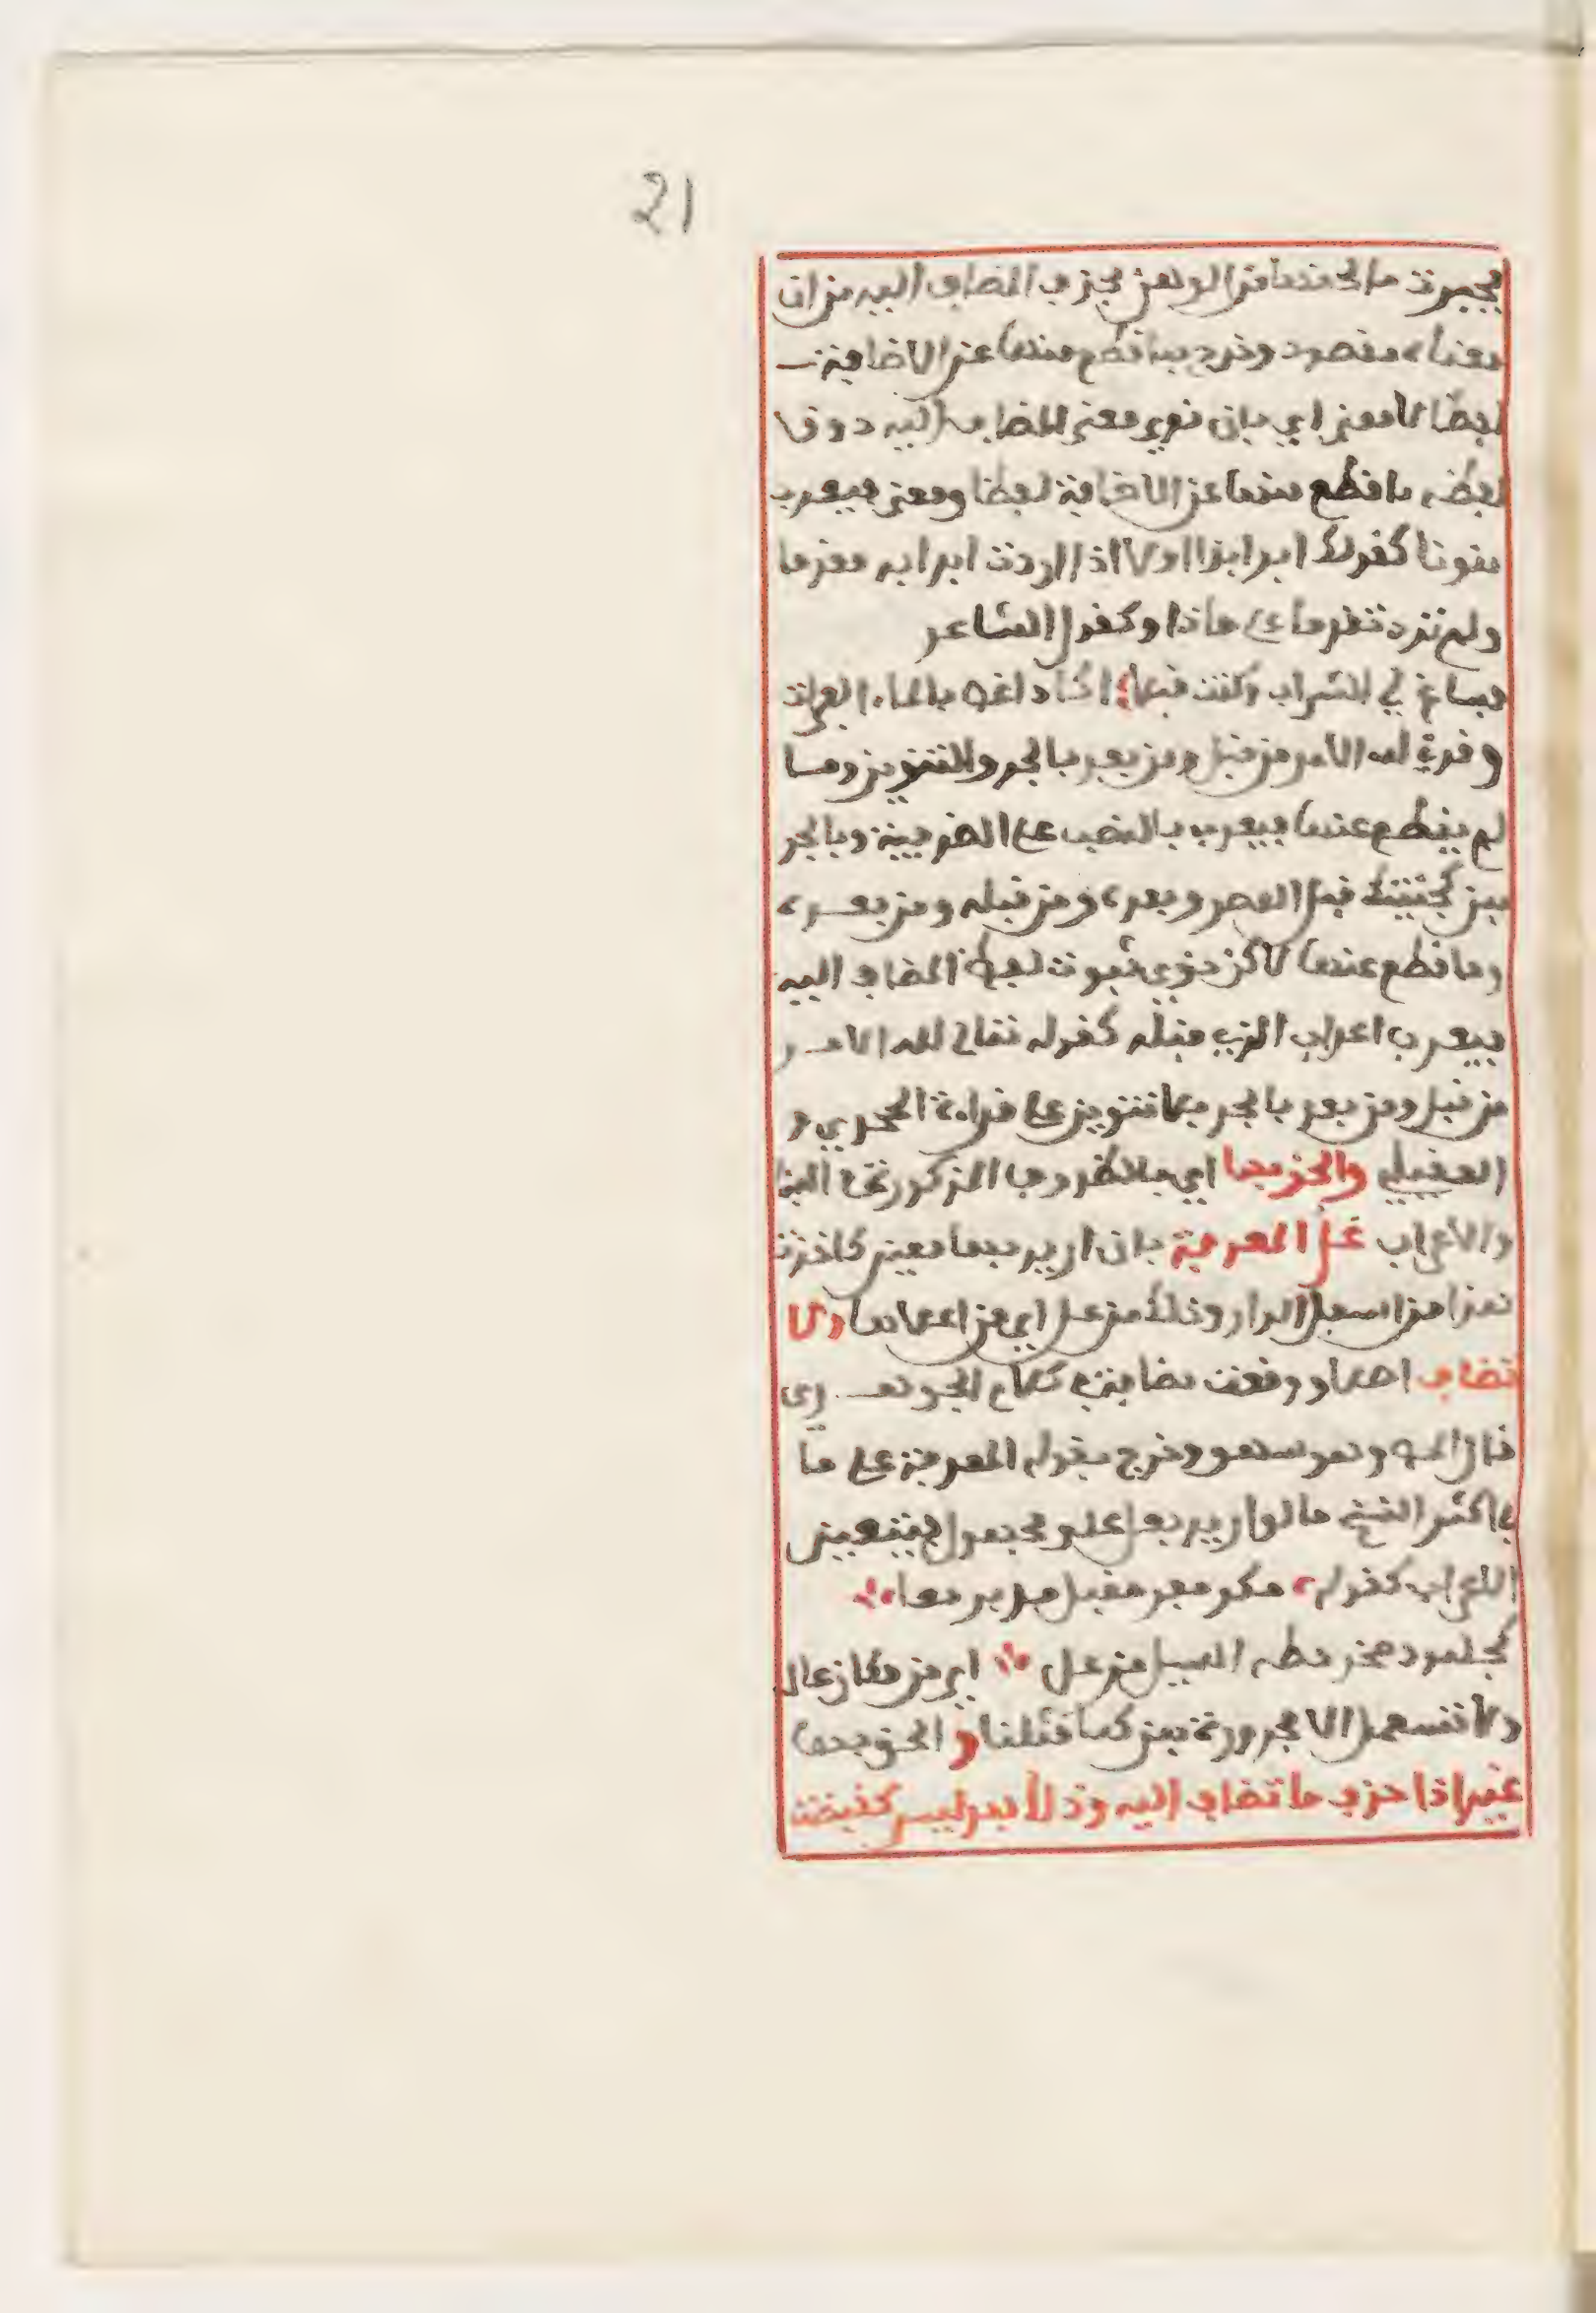 21
فجبرت ما لحقهما من الوهن بحذف المضاف اليه من ان
معناه مقصود وخرج بما قطع منهما عن الاضافة
لفظا لا معنى اي بان نوي معنى المضاف اليه دون
لفظه ما قطع منهما عن الاضافة لفظا ومعنى فيعرب
منونا كقولك ابدأ بذا اولا اذا اردت ابدا به مقدما
ولم ترد تقدما على ماذا وكقول الشاعر
فساغ لي الشراب وكنت قبلا اكاد اغص بالماء الفرات
وقرئ لله الامر من قبل ومن بعد بالجر والتنوين وما
لم يقطع عنها فيعرب بالنصب على الظرفية وبالجر
بمن كجئتك قبل العصر وبعده ومن قبله ومن بعده
وما قطع عنها لاكن نوي ثبوت لفظ المضاف اليه
فيعرب اعراب الذي قبله كقوله تعالى لله الامر
من قبل ومن بعد بالجر بلا تنوين على قراءة الجحدري و
العقيلي والحق بها اي بالظروف المذكورة في البنا
والاعراب عل المعرفة بان اريد بها معين كاخذت
هذا من اسفل الدار وذلك من عل اي من اعلاها ولا
تضاف اصلا ووقعت مضافة في كلام الجوهري
قال الـ وهو سهو وخرج بقوله المعرفة على ما
في اكثر النسخ ما لو اريد بعل علو مجهول فيتعين
الاعراب كقوله مكر مفر مقبل مدبر معا
كجلمود صخر حطه السيل من عل اي من مكان عال
ولا تستعمل الا مجرورة بمن كما مثلنا والحق بها
غير اذا حذف ما تضاف اليه وذلك بعد ليس كقبضت